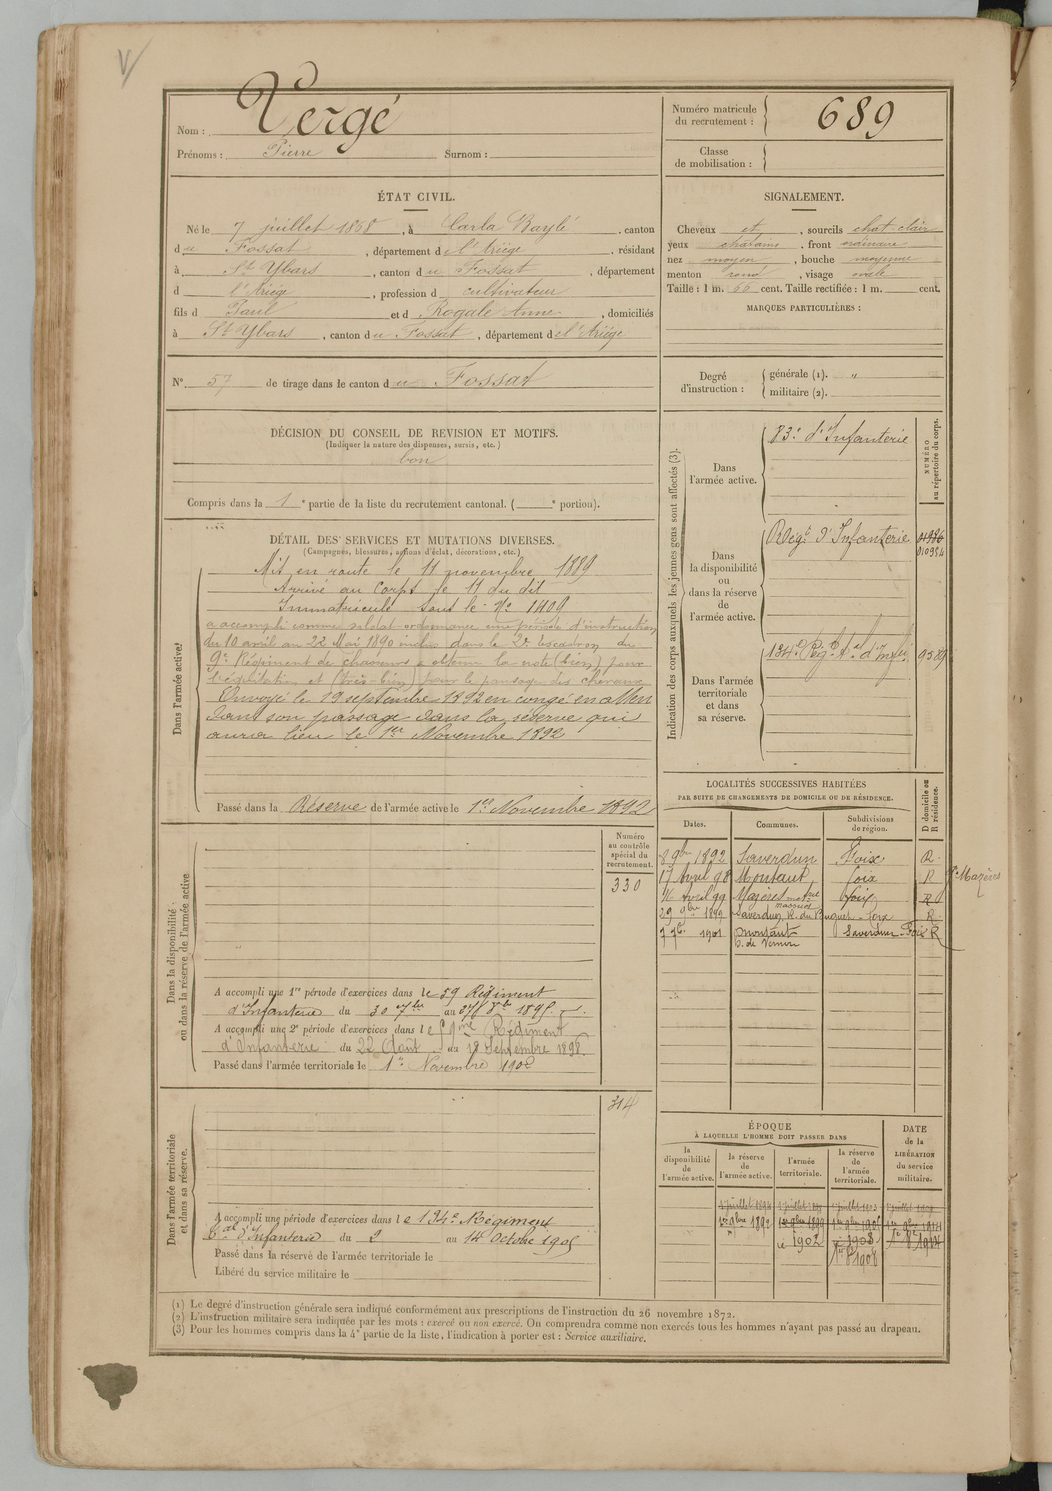 V
Nom : Vergé
Prénoms : Pierre Surnom :
Numéro matricule
du recrutement : 689
Classe
de mobilisation :
ÉTAT CIVIL.
Né le 7 juillet 1868, à Carla Baylé, canton
du Fossat, département de l'Ariège, résidant
à St Ybars, canton du Fossat, département
d l'Ariège, profession d cultivateur
fils d Paul et d Rogale Anne, domiciliés
à St Ybars, canton du Fossat, département de l'Ariège
N° 57 de tirage dans le canton du Fossat
SIGNALEMENT.
Cheveux et, sourcils chat clair
yeux chatains, front ordinaire
nez moyen, bouche moyenne
menton rond, visage ovale
Taille : 1 m. 66 cent. Taille rectifiée : 1 m. cent.
MARQUES PARTICULIÈRES :
Degré
d'instruction :
générale (1). "
militaire (2).
DÉCISION DU CONSEIL DE REVISION ET MOTIFS.
(Indiquer la nature des dispenses, sursis, etc.)
bon
Compris dans la 1e partie de la liste du recrutement cantonal. ( e portion).
DÉTAIL DES SERVICES ET MUTATIONS DIVERSES.
(Campagnes, blessures, actions d'éclat, décorations, etc.)
Dans l'armée active.
Mis en route le 11 novembre 1889
Arrivé au Corps le 11 du dit
Immatriculé sous le N° 1409
a accompli comme soldat ordonnance une période d'instruction
du 10 avril au 22 Mai 1890 inclus dans le 2e escadron du
9e Régiment de chasseurs a obtenu la note (bien) pour
l'équitation et (très-bien) pour le pansage des chevaux
Envoyé le 19 septembre 1892 en congé en atten
dant son passage dans la réserve qui
aura lieu le 1er Novembre 1892
Passé dans la Réserve de l'armée active le 1er Novembre 1892
Indication des corps auxquels les jeunes gens sont affectés (3).
NUMÉRO
au répertoire du corps.
Dans
l'armée active.
83e d'Infanterie
Dans
la disponibilité
ou
dans la réserve
de
l'armée active.
Régt d'Infanterie
010984
Dans l'armée
territoriale
et dans
sa réserve.
134e Régt d'Infie
9589
LOCALITÉS SUCCESSIVES HABITÉES
PAR SUITE DE CHANGEMENTS DE DOMICILE OU DE RÉSIDENCE.
Dates. Communes. Subdivisions
de région. D domicile ou
R résidence.
8 9bre 1892 Saverdun Foix R.
17 Avril 98 Montaut foix R
16 Avril 99 Mazères foix R
29 9bre 1899 Saverdun, R. du foix R.
7 7bre 1901 Montaut Saverdun - Foix R
C. de Vernou
Mazères
Dans la disponibilité
ou dans la réserve de l'armée active
Numéro
au contrôle
spécial du
recrutement.
330
A accompli une 1re période d'exercices dans le 59 Régiment
d'Infanterie du 30 7bre au 1895.
A accompli une 2e période d'exercices dans le 59me Régiment
d'Infanterie du 22 Août au 18 Septembre 1898.
Passé dans l'armée territoriale le 1er Novembre 1902
Dans l'armée territoriale
et dans sa réserve.
314
A accompli une période d'exercices dans le 134e Régiment
d'Infanterie du 2 au 14 Octobre 1905
Passé dans la réserve de l'armée territoriale le
Libéré du service militaire le
ÉPOQUE
À LAQUELLE L'HOMME DOIT PASSER DANS
DATE
de la
LIBÉRATION
du service
militaire.
la
disponibilité
de
l'armée active.
la réserve
de
l'armée active.
l'armée
territoriale.
la réserve
de
l'armée
territoriale.
1er 9bre 1892 1er 9bre 1899
1902 1908
1908
(1) Le degré d'instruction générale sera indiqué conformément aux prescriptions de l'instruction du 26 novembre 1872.
(2) L'instruction militaire sera indiquée par les mots : exercé ou non exercé. On comprendra comme non exercés tous les hommes n'ayant pas passé au drapeau.
(3) Pour les hommes compris dans la 4e partie de la liste, l'indication à porter est : Service auxiliaire.